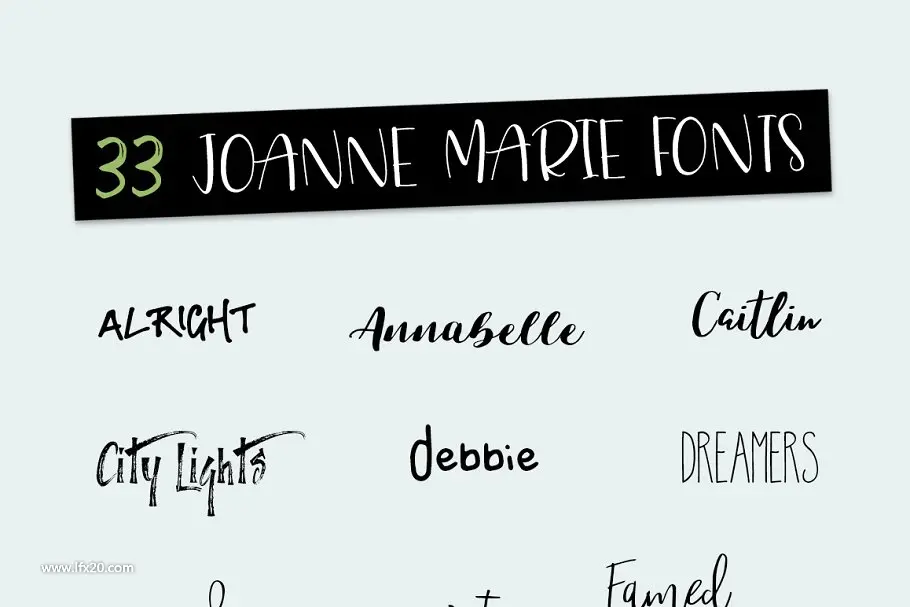 33 JOANNE MARIE FONTS
ALRIGHT Annabelle Caitlin
City Lights debbie DREAMERS
Famed
www.lfx20.com